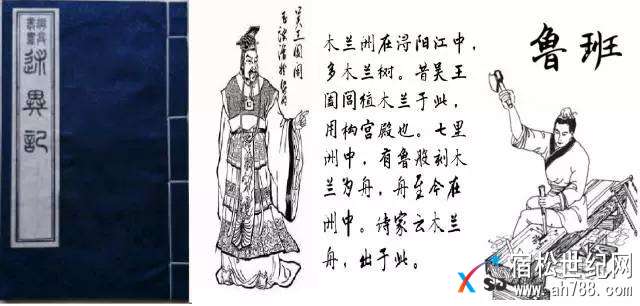 述異記
吴王阖闾
木兰洲在浔阳江中，
多木兰树。昔吴王
阖闾植木兰于此，
用构宫殿也。七里
洲中，有鲁般刻木
兰为舟，舟至今在
洲中。诗家云木兰
舟，出于此。
鲁班
宿松世纪网
www.ah788.com